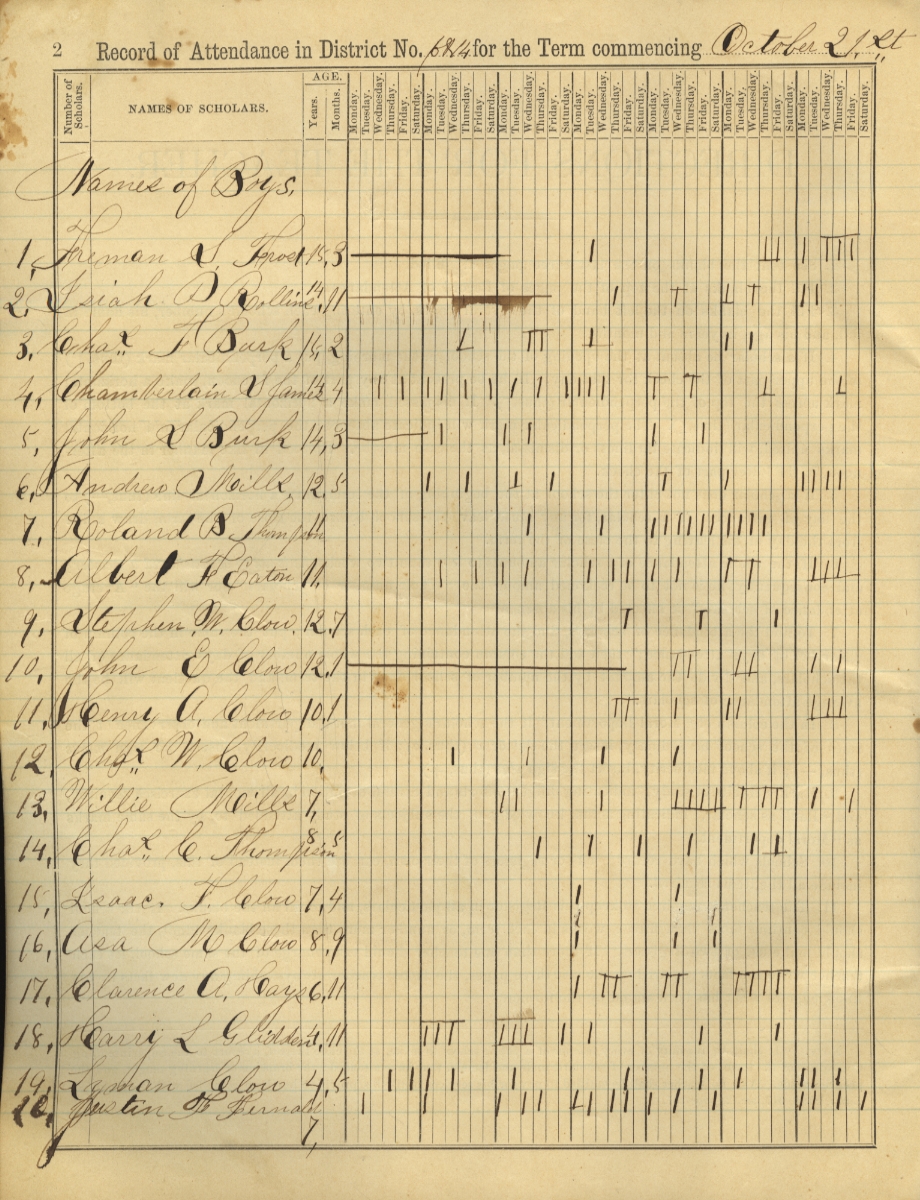 2 Record of Attendance in District No. 6&4 for the Term commencing October 21.st
Number of Scholars. NAMES OF SCHOLARS. AGE. Years. Months. Monday. Tuesday. Wednesday. Thursday. Friday. Saturday. Monday. Tuesday. Wednesday. Thursday. Friday. Saturday. Monday. Tuesday. Wednesday. Thursday. Friday. Saturday. Monday. Tuesday. Wednesday. Thursday. Friday. Saturday. Monday. Tuesday. Wednesday. Thursday. Friday. Saturday. Monday. Tuesday. Wednesday. Thursday. Friday. Saturday. Monday. Tuesday. Wednesday. Thursday. Friday. Saturday.
Names of Boys.
1, Freman S. Frost 15, 3
2, Isiah D Rollins 14, 11
3, Chas. F Burk 15, 2
4, Chamberlain S James 14 4
5, John S Burk 14, 3
6, Andrew Mills, 12, 5
7, Roland B Thompson 11
8, Albert F Eaton 11,
9, Stephen W. Clow. 12, 7
10, John E Clow 12, 1
11, Henry A. Clow 10, 1
12, Chas. W. Clow 10,
13, Willie Mills 7,
14, Chas. C. Thompson 8, 5
15, Isaac. F. Clow 7, 4
16, Asa M Clow 8, 9
17, Clarence A, Hays 6, 11
18, Harry L Glidden 4, 11
19, Lyman Clow 4, 5
20, Justin F Fernald
7,